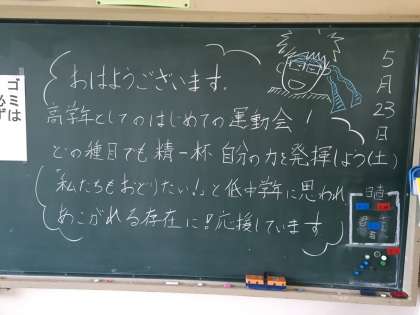 おはようございます.
高学年としてのはじめての運動会!
どの種目でも精一杯自分の力を発揮しよう
「私たちもおどりたい!」と低中学年に思われ
あこがれる存在に!応援しています
5月23日(土)
日直
ゴミは
必ず